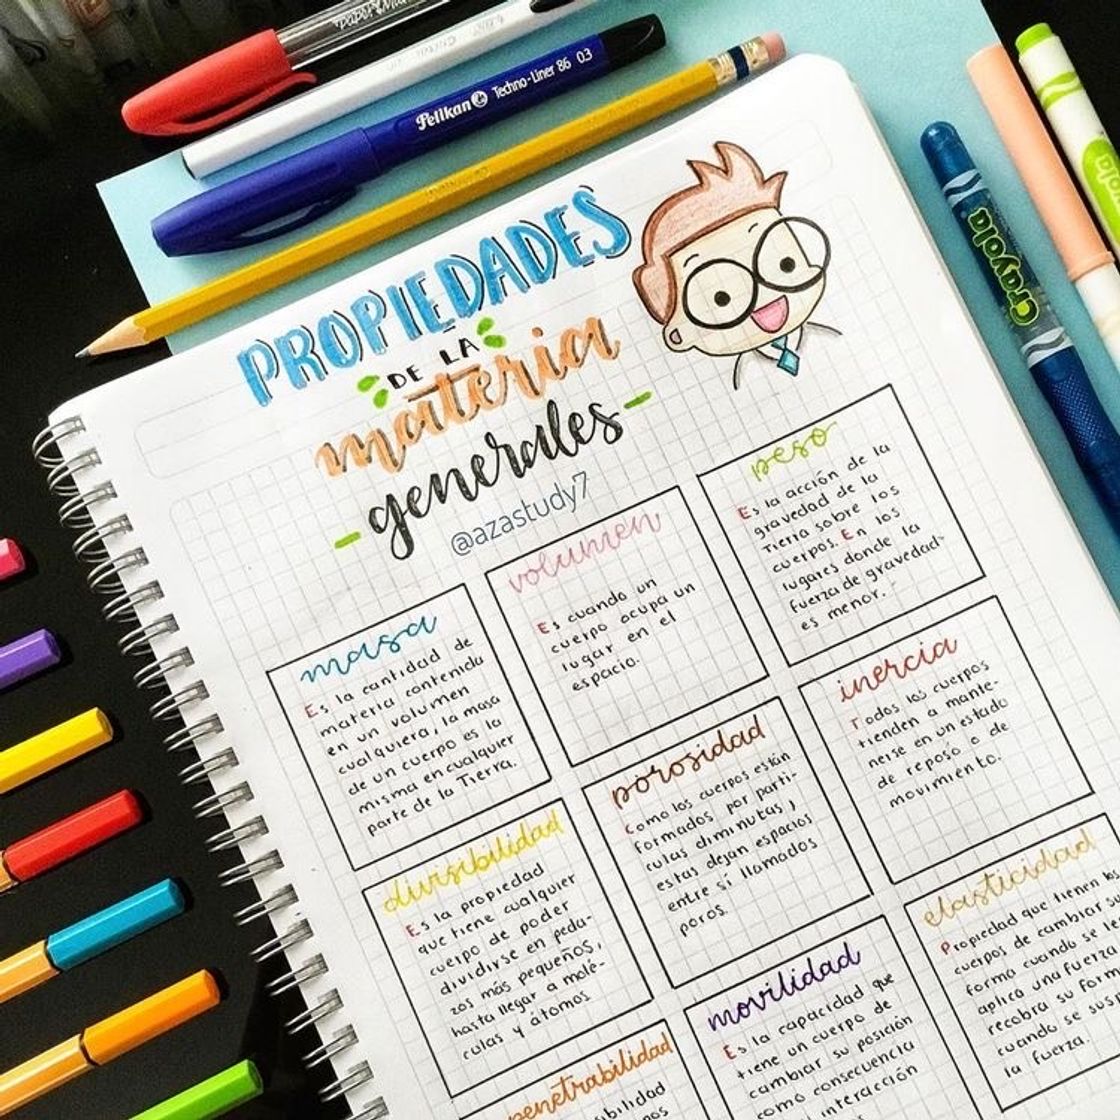 Pelikan Techno-Liner 86 03
Crayola
PROPIEDADES
DE LA
materia
-generales-
@azastudy7
masa
Es la cantidad de
materia contenida
en un volumen
cualquiera, la masa
de un cuerpo es la
misma en cualquier
parte de la Tierra.
volumen
Es cuando un
cuerpo ocupa un
lugar en el
espacio.
peso
Es la acción de la
gravedad de la
Tierra sobre los
cuerpos. En los
lugares donde la
fuerza de gravedad
es menor.
divisibilidad
Es la propiedad
que tiene cualquier
cuerpo de poder
dividirse en peda-
zos más pequeños,
hasta llegar a molé-
culas y átomos
porosidad
Como los cuerpos están
formados por partí-
culas diminutas,
estas dejan espacios
entre sí llamados
poros.
inercia
Todos los cuerpos
tienden a mante-
nerse en un estado
de reposo o de
movimiento.
penetrabilidad
movilidad
Es la capacidad que
tiene un cuerpo de
cambiar su posición
como consecuencia
interacción
elasticidad
Propiedad que tienen los
cuerpos de cambiar su
forma cuando se le
aplica una fuerza
recobra su forma
cuando se
la fuerza.